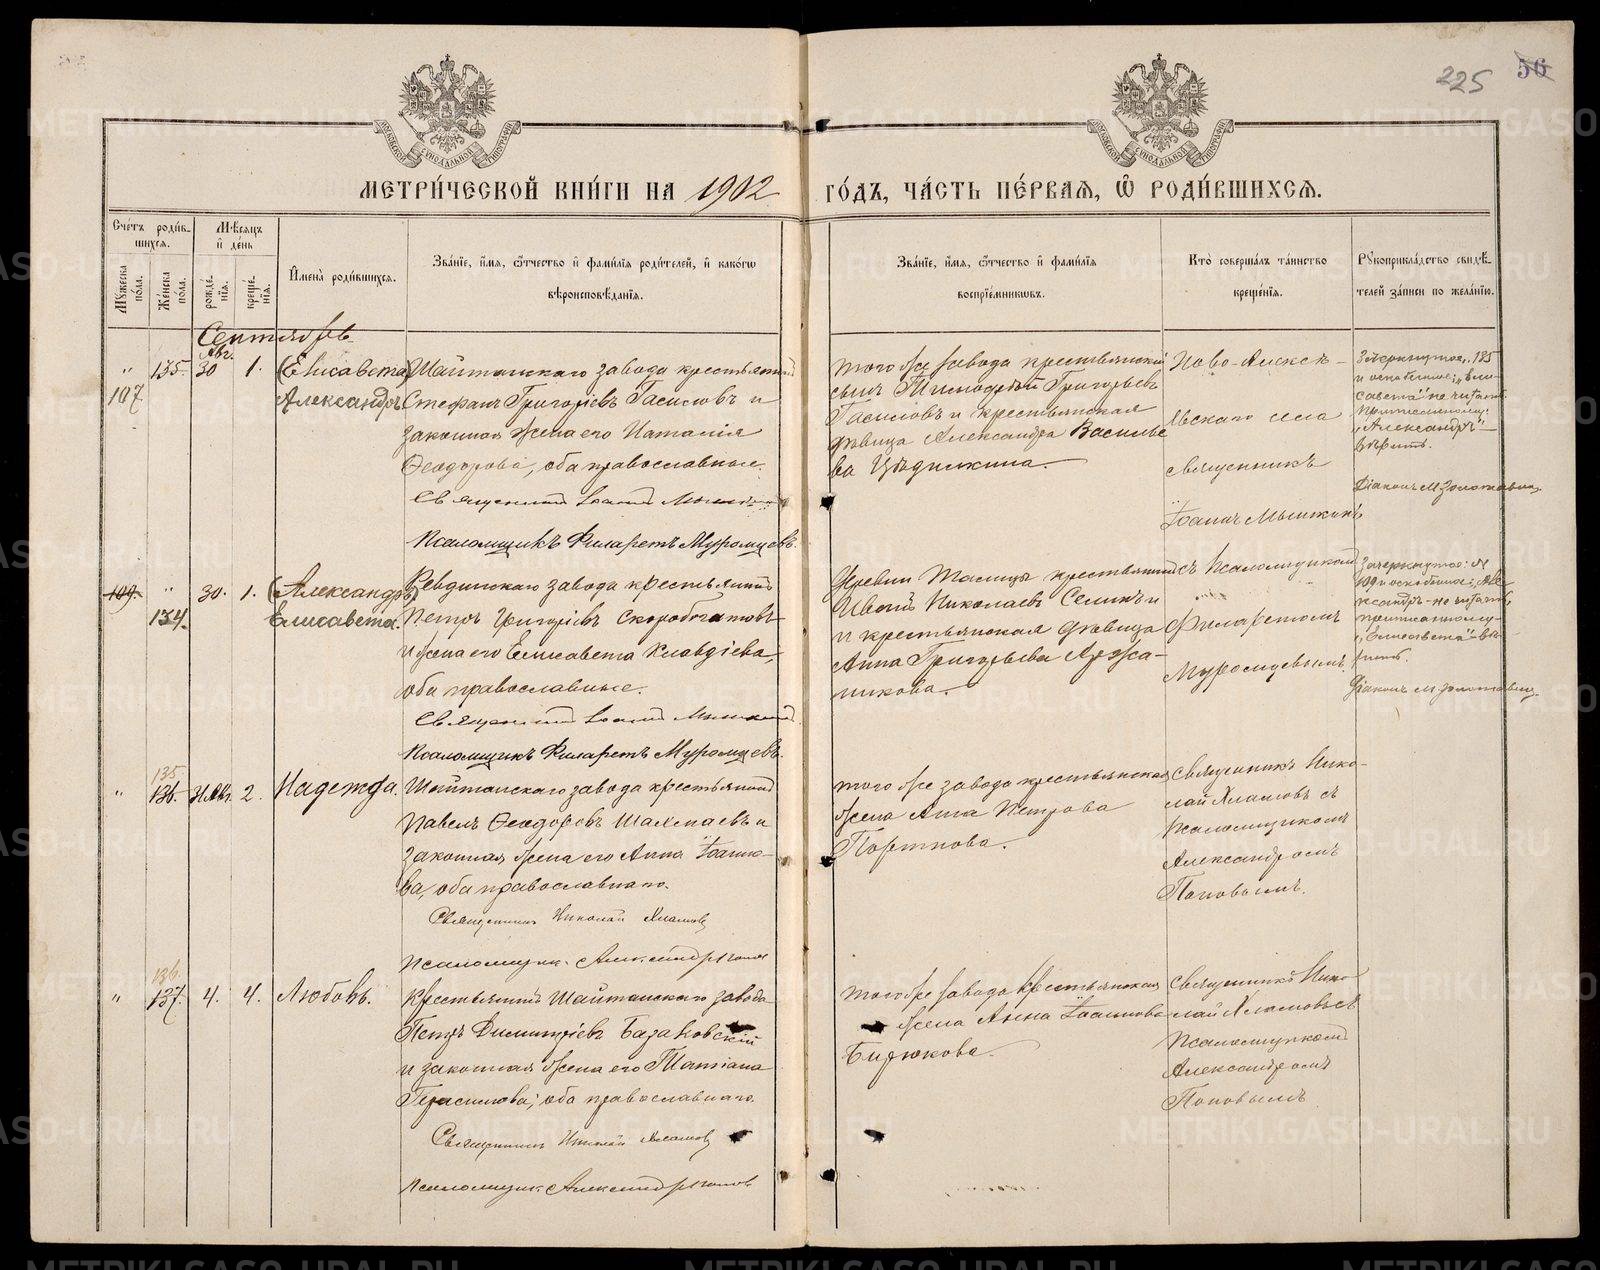 225 56
МЕТРИ́ЧЕСКОЙ КНИ́ГИ НА 1902
ГО́ДЪ, ЧА́СТЬ ПЕ́РВАЯ, Ѽ РОДИ́ВШИХСЯ.
Сче́тъ роди́в-
шихся.
Мꙋжеска по́ла.
Же́нска пола.
Мѣ́сяцъ
и҆ де́нь
рожде́-
нїя.
креще́-
нїя.
И҆мена̀ роди́вшихся.
Зва́нїе, и҆́мя, ѻ҆́тчество и҆ фами́лїя роди́телей, и҆ како́гѡ
вѣроисповѣ́данїя.
Зва́нїе, и҆́мя, ѻ҆́тчество и҆ фами́лїя
воспрїе́мникѡвъ.
Кто̀ соверша́лъ та́инство
креще́нїя.
Рꙋкоприкла́дство свидѣ́-
телей за́писи по жела́нїю.
Сентябрь
Авг.
" 135. 30 1. (Елисавета)
107 Александръ.
Шайтанскаго завода крестьянинъ
Стефанъ Григоріевъ Гасиловъ и
законная жена его Наталія
Ѳеодорова, оба православные.
Священникъ Іоаннъ Мышкинъ
Псаломщикъ Филаретъ Муромцевъ.
того же завода крестьянскій
сынъ Тимоѳей Григорьевъ
Гасиловъ и крестьянская
дѣвица Александра Василье
ва Цѣдилкина.
Ново-Алексѣ-
евскаго села
священникъ
Іоаннъ Мышкинъ
Зачеркнутое: 135
и оскобленное: „Ели-
савета" не читать
приписанному:
„Александръ" —
вѣрить.
Діаконъ М Золотавинъ
109. " 30. 1. (Александръ)
134. Елисавета.
Ревдинскаго завода крестьянинъ
Петръ Григоріевъ Скоробогатовъ
и жена его Елисавета Клавдіева,
оба православные.
Священникъ Іоаннъ Мышкинъ
Псаломщикъ Филаретъ Муромцевъ.
деревни Талицы крестьянинъ
Николаевъ Селинъ и
и крестьянская дѣвица
Анна Григорьева Аржа-
никова.
съ Псаломщикомъ
Филаретомъ
Муромцевымъ
Зачеркнутое: №
109 и оскобленное: Але
ксандръ - не читать,
приписанному -
„Елисавета" - вѣ
рить.
Діаконъ М Золотавинъ
135
" 136. 31 Авг. 2. Надежда.
Шайтанскаго завода крестьянинъ
Павелъ Ѳеодоровъ Шахмаевъ и
законная жена его Анна Іоанно-
ва, оба православнаго.
Священникъ Николай Хламовъ
псаломщик. Александръ Поповъ
того же завода крестьянская
жена Анна Петрова
Портнова.
Священникъ Нико-
лай Хламовъ съ
псаломщикомъ
Александромъ
Поповымъ.
136.
" 137. 4. 4. Любовь.
Крестьянинъ Шайтанскаго завода
Петръ Димитріевъ Базановскій
и законная жена его Татіана
Герасимова, оба православнаго.
Священникъ Николай Хламовъ
псаломщик. Александръ Поповъ
того же завода крестьянская
жена Анна Іоаннова
Бирюкова.
Священникъ Нико-
лай Хламовъ съ
псаломщикомъ
Александромъ
Поповымъ
METRIKI.GASO-URAL.RU